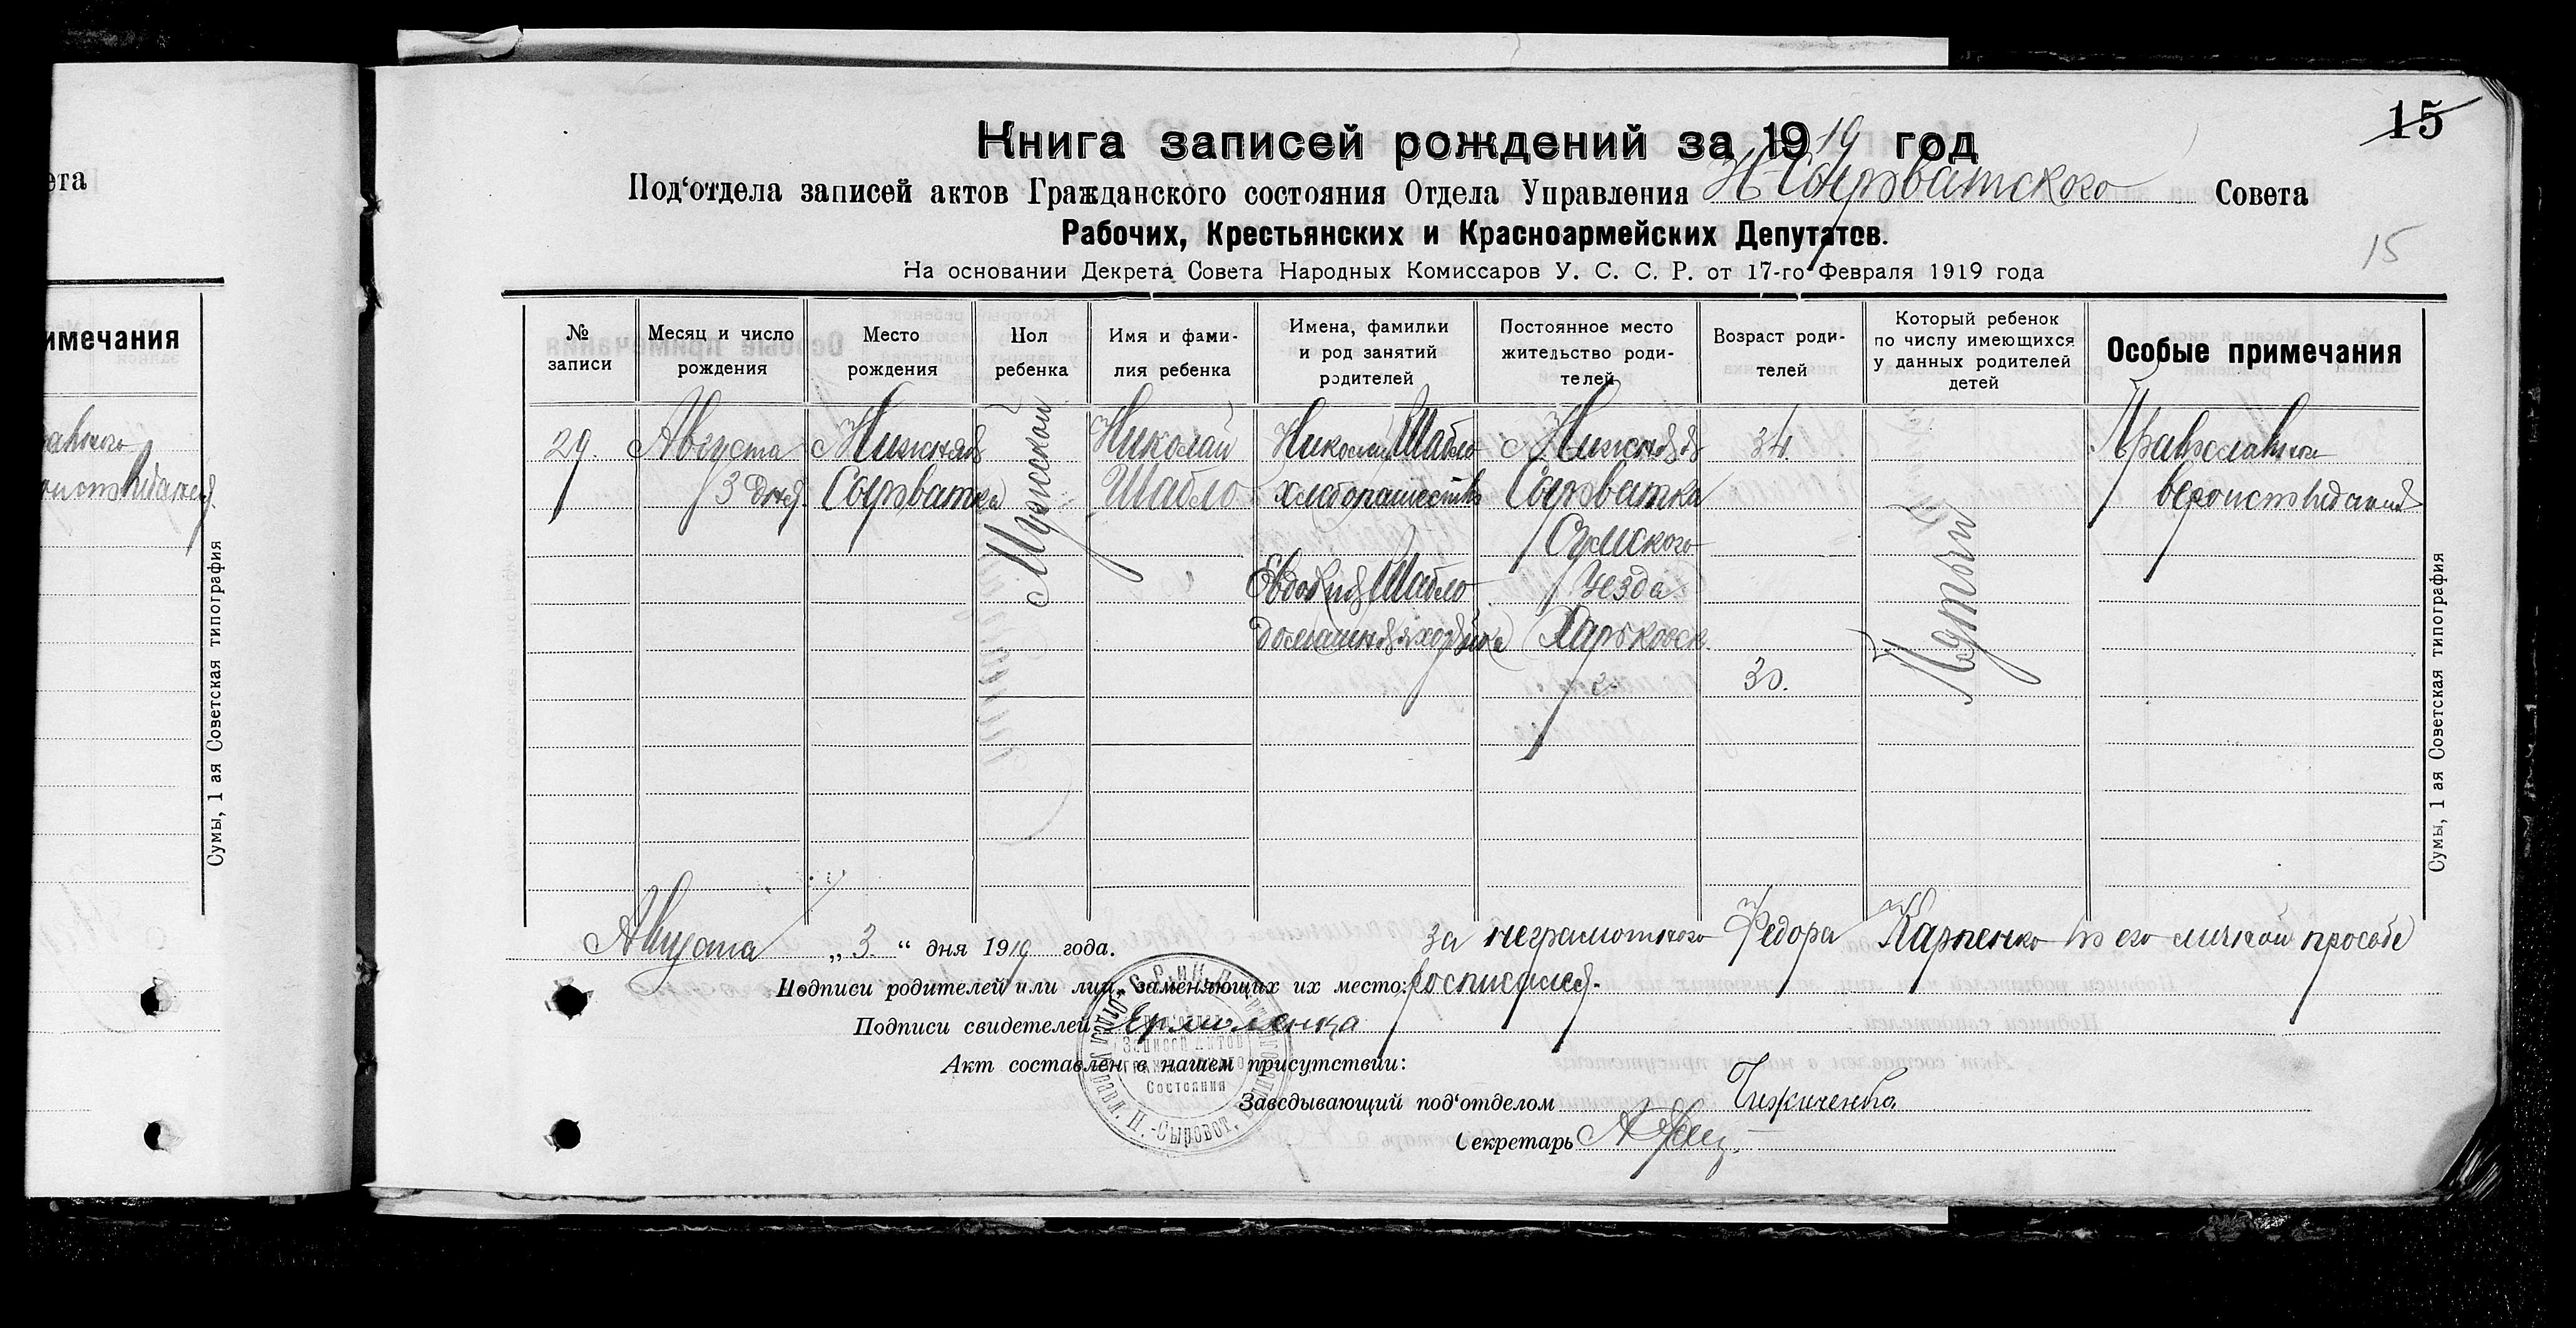 ета
имечания
Сумы, 1 ая Советская типография
15
Книга записей рождений за 1919 год
Под'отдела записей актов Гражданского состояния Отдела Управления Н Сыроватского Совета
Рабочих, Крестьянских и Красноармейских Депутатов.
15
На основании Декрета Совета Народных Комиссаров У. С. С. Р. от 17-го Февраля 1919 года
№ записи
Месяц и число рождения
Место рождения
Пол ребенка
Имя и фами-
лия ребенка
Имена, фамилии
и род занятий
родителей
Постоянное место
жительство роди-
телей
Возраст роди-
телей
Который ребенок
по числу имеющихся
у данных родителей
детей
Особые примечания
29.
Августа
3 дня.
с Нижняя
Сыроватка
Мужской
Николай
Шабло
Николай Шабло
хлебопашество
Евдокия Шабло
домашняя хозяйка
с Нижняя
Сыроватка
Сумского
Уезда
Харьковск.
г.
34.
30.
Пятый
Православного
вероисповедания
Сумы, 1 ая Советская типография
Августа „3.“ дня 1919 года.
за неграмотного Федора Карпенко по его личной прозбе
Подписи родителей или лиц, заменяющих их место: росписался.
Подписи свидетелей
Акт составлен в нашем присутствии:
Записей Актов
Состояния
Заведывающий под'отделом
Секретарь